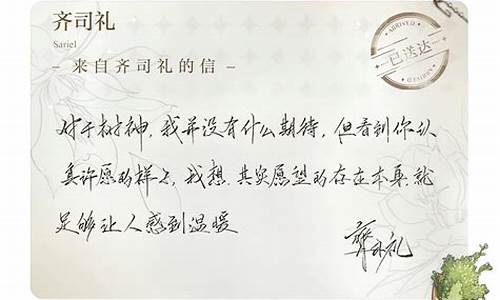 齐司礼
Sariel
– 来自齐司礼的信 –
ARRIVED
已送达
ARRIVED
对于树神,我并没有什么期待,但看到你认
真许愿的样子,我想,其实愿望的存在本身,就
足够让人感到温暖
齊司礼